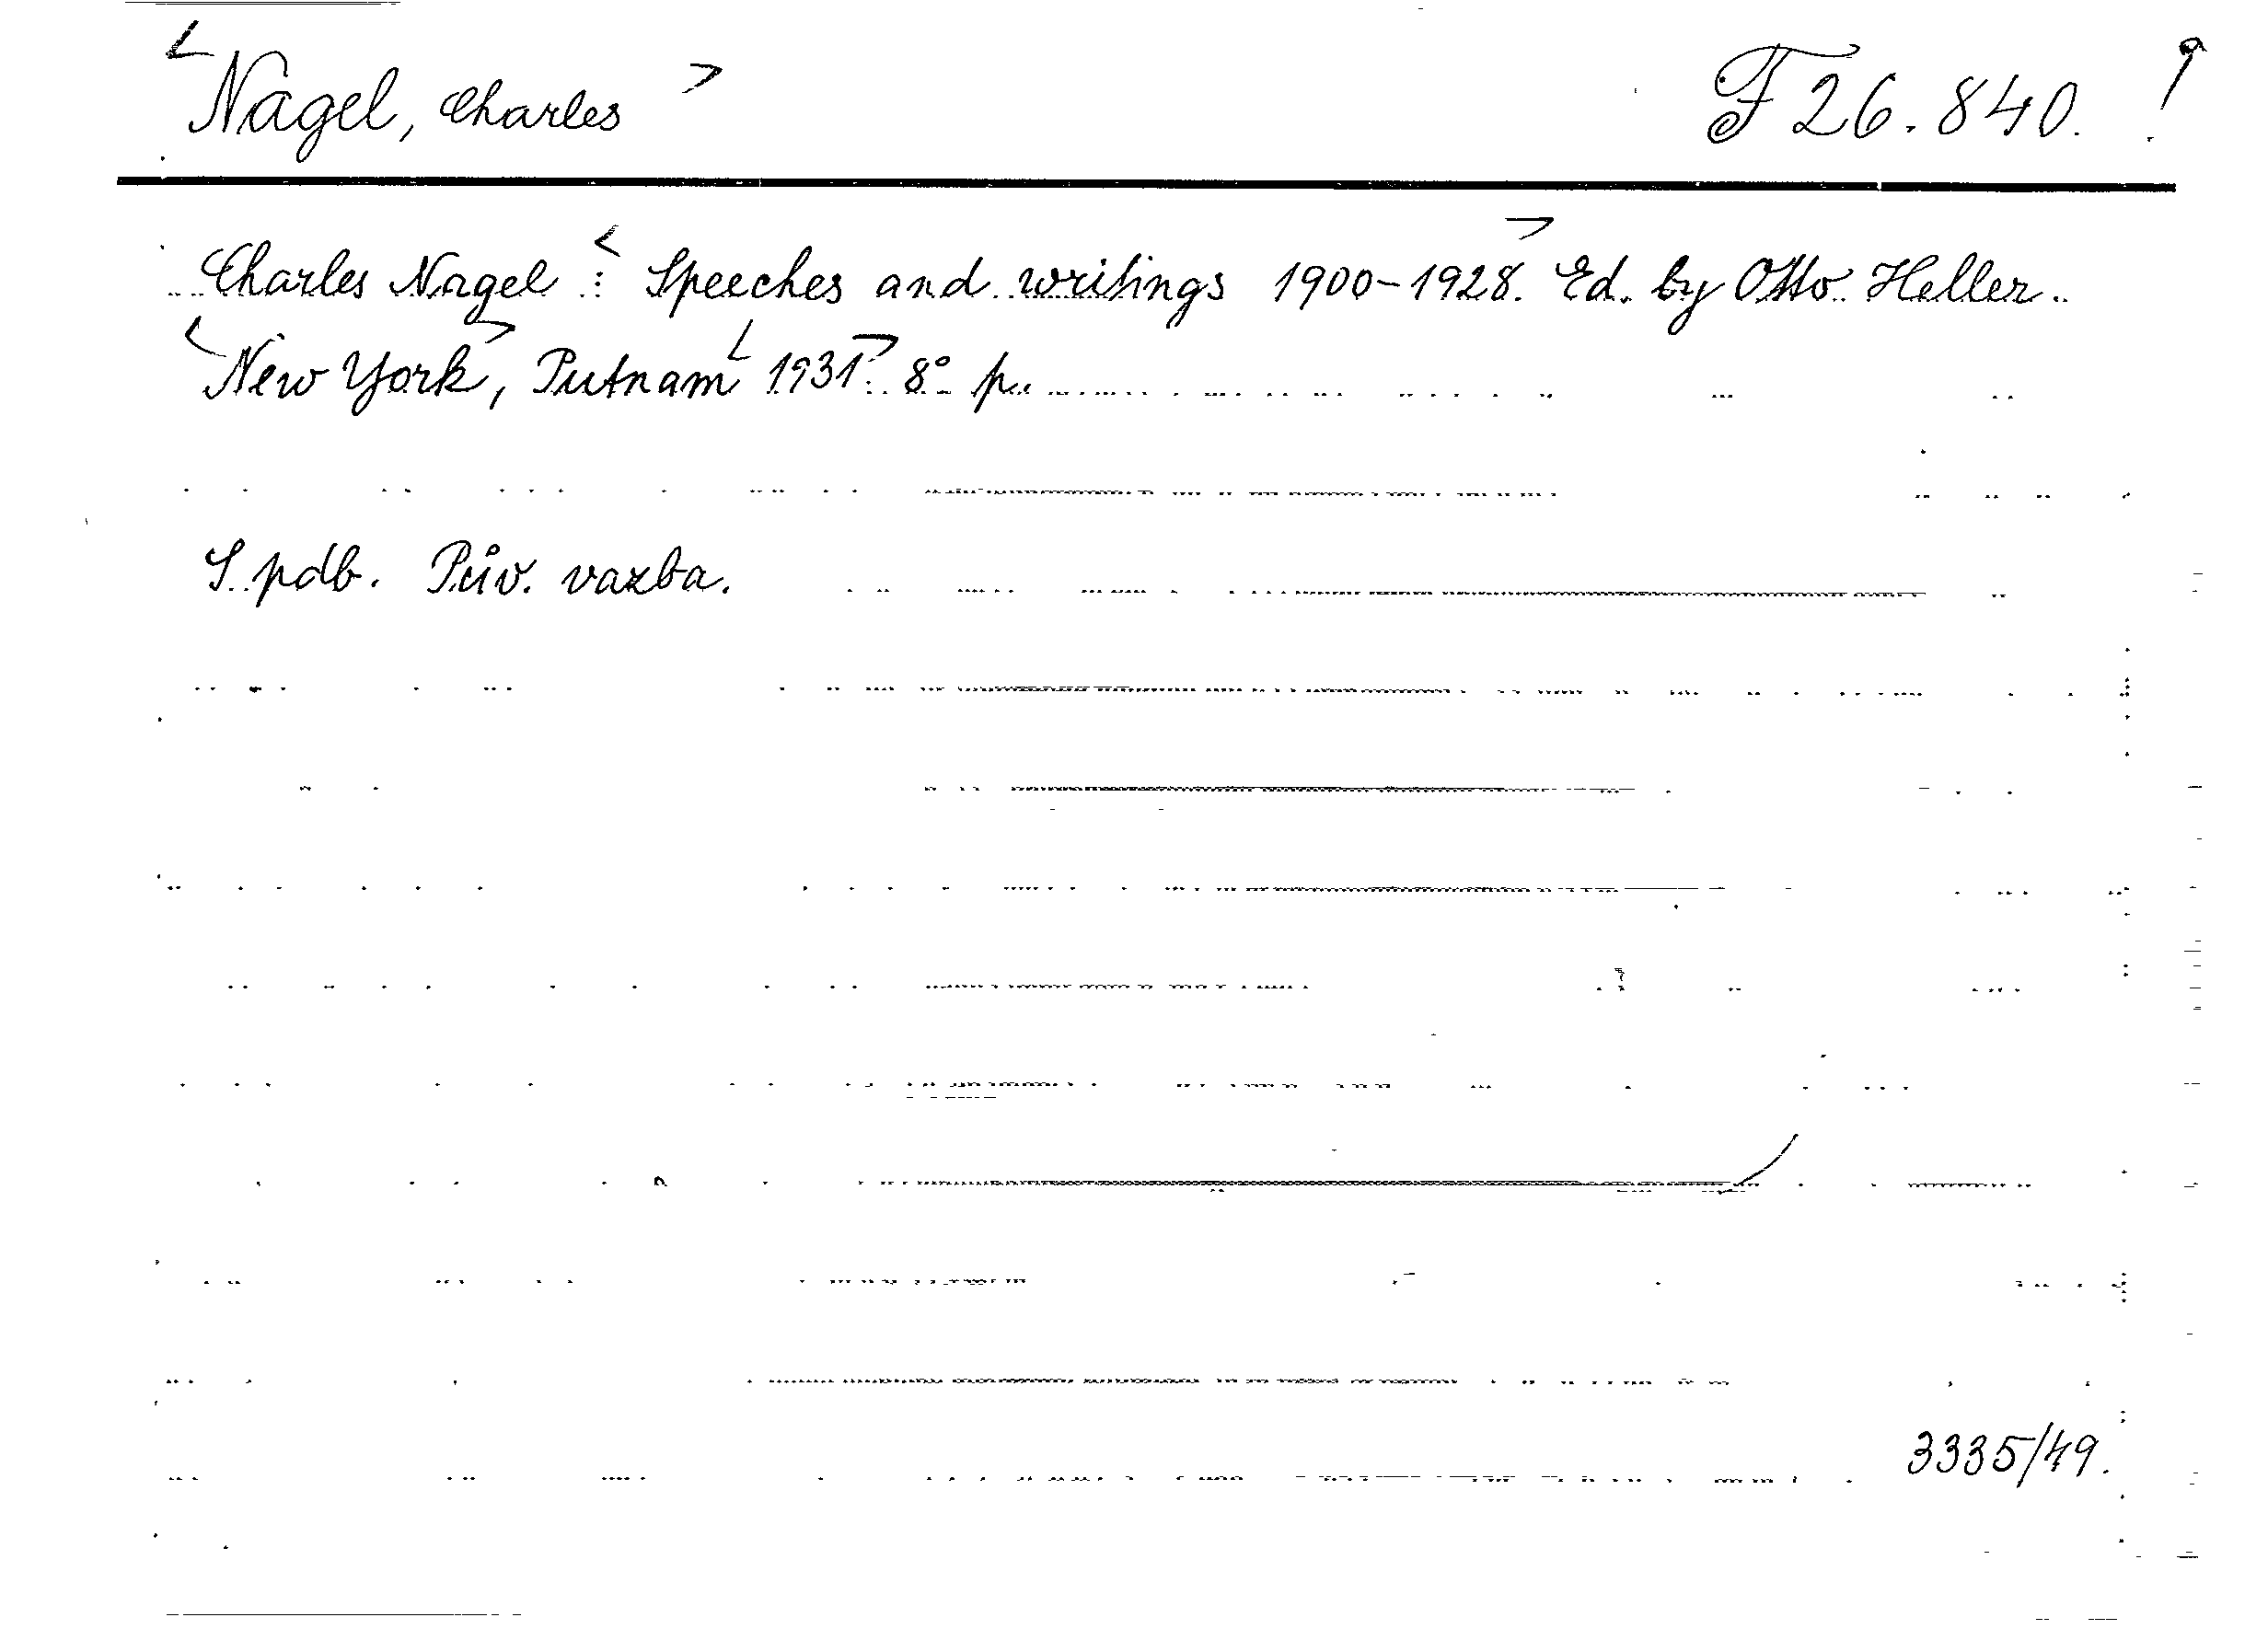 <Nagel, Charles> F 26.840.
Charles Nagel : <Speeches and writings 1900-1928.> Ed. by Otto Heller.
<New York>, Putnam <1931>. 8° p.
S pdb. Pův. vazba.
3335/49.